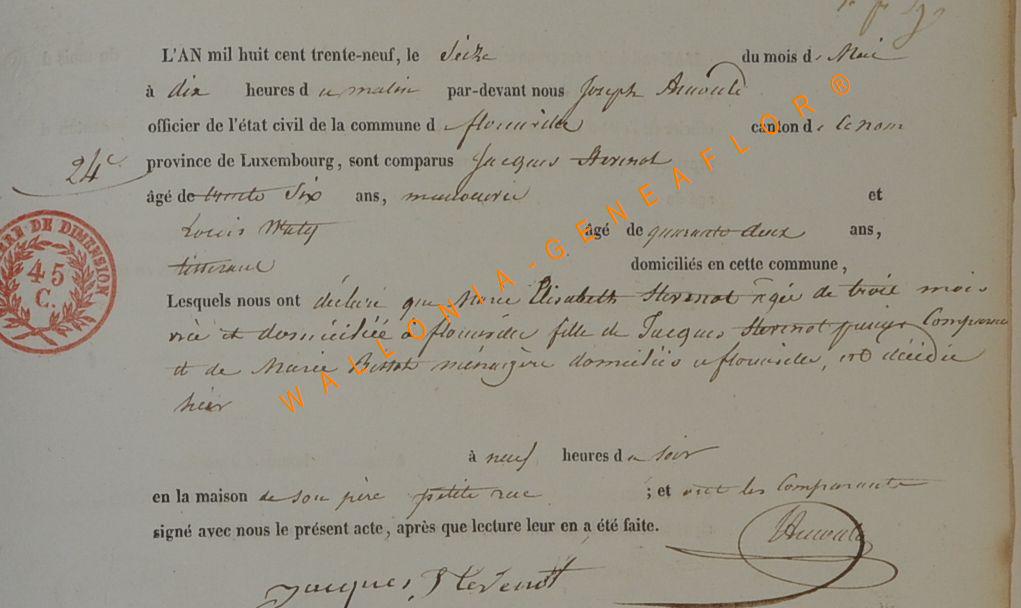 L'AN mil huit cent trente-neuf, le Seize du mois de Mai
à dix heures du matin par-devant nous Joseph
officier de l'état civil de la commune de florenville canton de
24e province de Luxembourg, sont comparus Jacques Stevenot
âgé de trente Six ans, manouvrier et
Louis Waty âgé de quarante deux ans,
tisserand domiciliés en cette commune,
Lesquels nous ont déclaré que Marie Elisabeth Stevenot âgée de trois mois
née et domiciliée à florenville fille de Jacques Stevenot Comparant
et de Marie ménagère domiciliés à florenville, est décédée
hier
à neuf heures du soir
en la maison de son père petite rue ; et ont les Comparants
signé avec nous le présent acte, après que lecture leur en a été faite.
Jacques Stevenot
TIMBRE DE DIMENSION
45
C.
WALLONIA-GENEAFLOR®